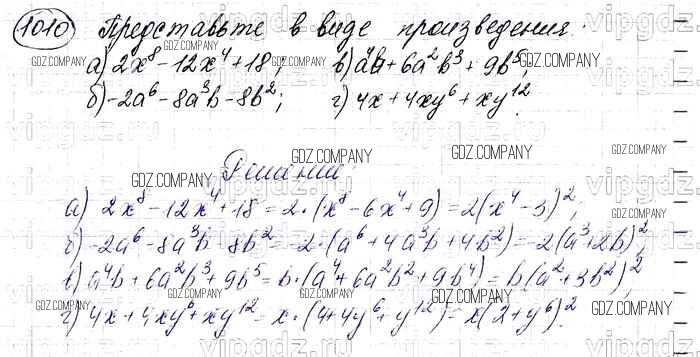 1010 Представьте в виде произведения:
а) 2x⁸ - 12x⁴ + 18; в) a⁴b + 6a²b³ + 9b⁵;
б) -2a⁶ - 8a³b - 8b²; г) 4x + 4xy⁶ + xy¹².
Решение:
а) 2x⁸ - 12x⁴ + 18 = 2·(x⁸ - 6x⁴ + 9) = 2(x⁴ - 3)²;
б) -2a⁶ - 8a³b - 8b² = -2·(a⁶ + 4a³b + 4b²) = -2(a³ + 2b)²;
в) a⁴b + 6a²b³ + 9b⁵ = b·(a⁴ + 6a²b² + 9b⁴) = b(a² + 3b²)²;
г) 4x + 4xy⁶ + xy¹² = x·(4 + 4y⁶ + y¹²) = x(2 + y⁶)².